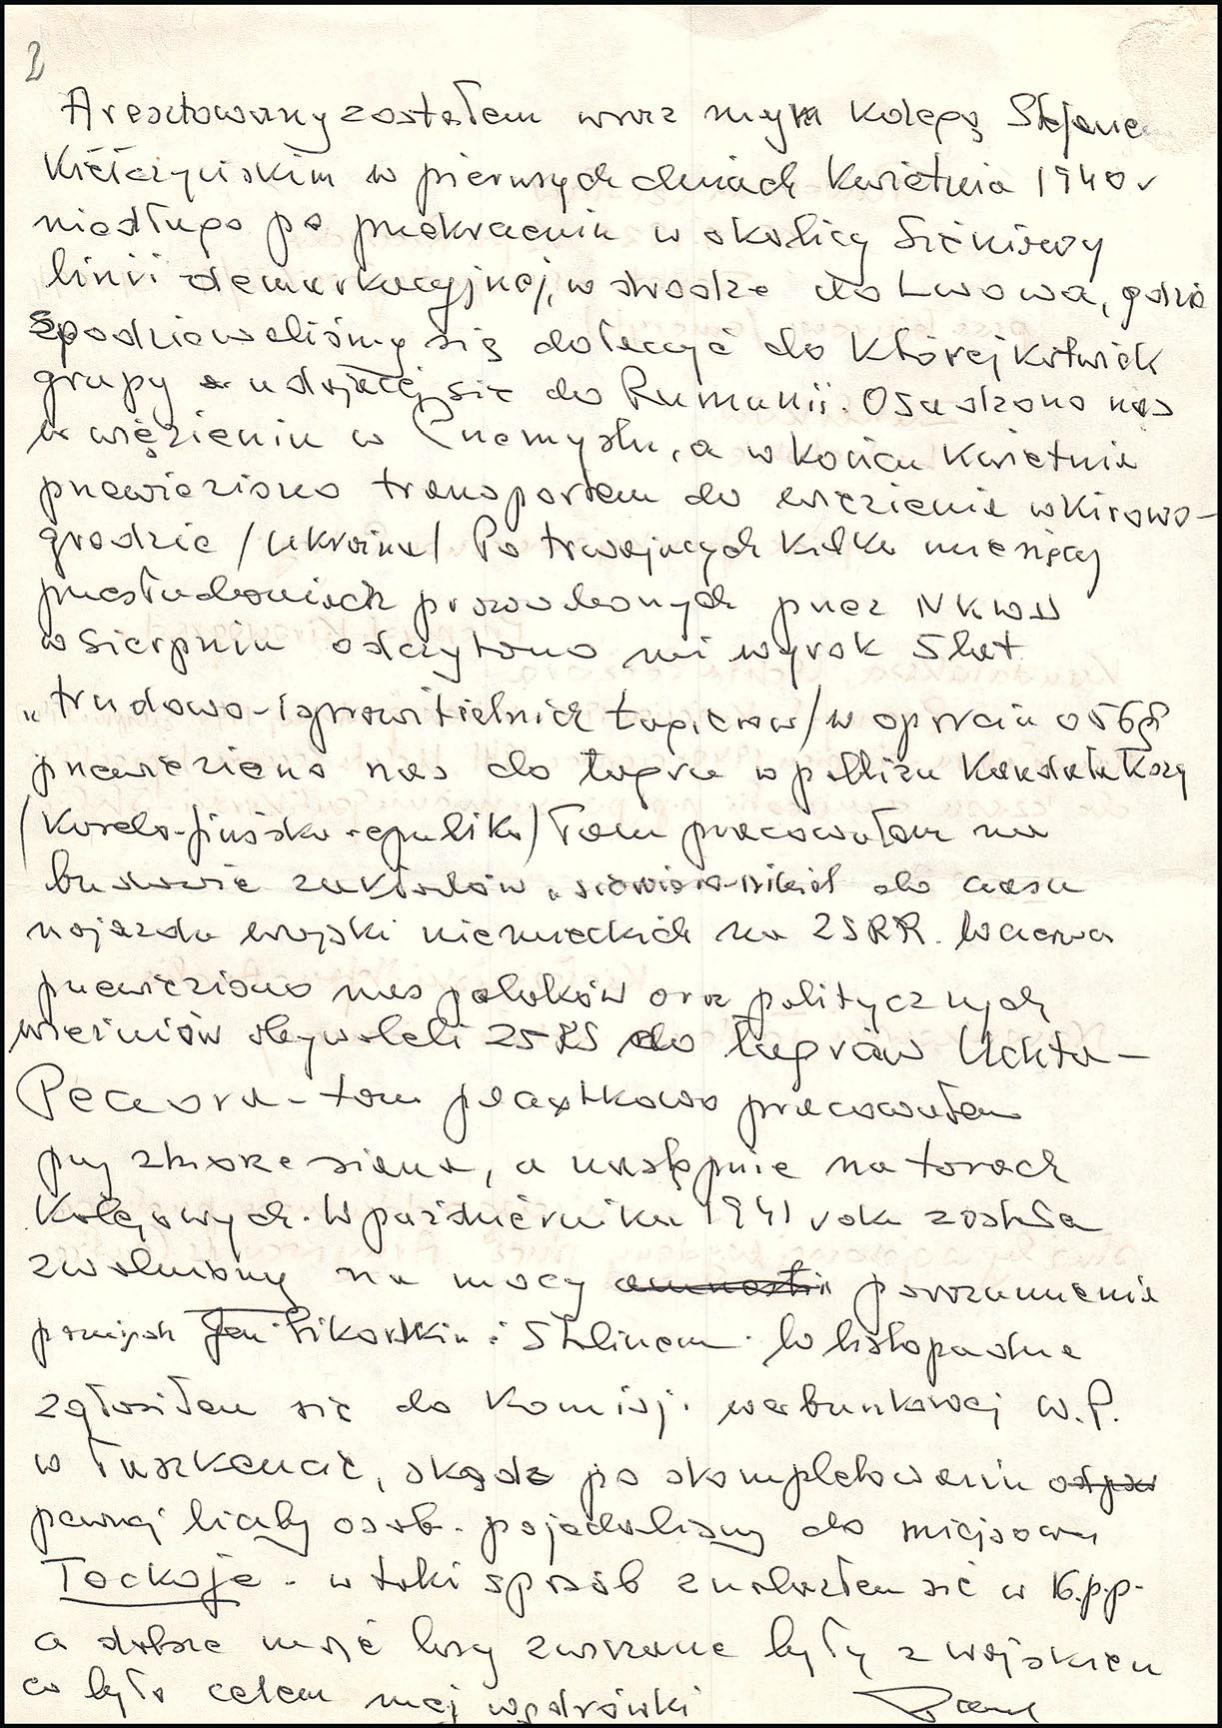 2
Aresztowany zostałem wraz mym kolegą Stefane
Kiełczyńskim w pierwszych dniach kwietnia 1940 r
niedługo po przekroczeniu w okolicy Sieniawy
linii demarkacyjnej, w drodze do Lwowa, gdzie
spodziewaliśmy się dołączyć do którejkolwiek
grupy udającej się do Rumunii. Osadzono nas
w więzieniu w Przemyślu, a w końcu kwietnia
przewieziono transportem do więzienia w Kirowo-
gradzie /Ukraina/ Po trwających kilka miesięcy
przesłuchaniach prowadzonych przez NKWD
w sierpniu odczytano mi wyrok 5 lat
„trudowo-isprawitielnich łagierow/w oparciu o 56§
przewieziono nas do łagru w pobliżu Kandałakszy
(Karelo-fińska republika) Tam pracowałem na
budowie zakładów do czasu
najazdu wojsk niemieckich na ZSRR. W czerwcu
przewieziono nas polaków oraz politycznych
więźniów obywateli ZSRS do łagrów Uchta-
Peczora - tam początkowo pracowałem
przy zbiorze siana, a następnie na torach
kolejowych. W październiku 1941 roku zosta
zwolniony na mocy amnestii porozumienia
pomiędz Gen. Sikorskim i Stalinem. W listopadzie
zgłosiłem się do Komisji werbunkowej W.P.
w Taszkencie, skąd po skompletowaniu
pewnej liczby osób. pojechaliśmy do miejscowa
Tockoje - w taki sposób znalazłem się w 16.p.p.
a dalsze moje losy związane były z wojskiem
co było celem mej wędrówki